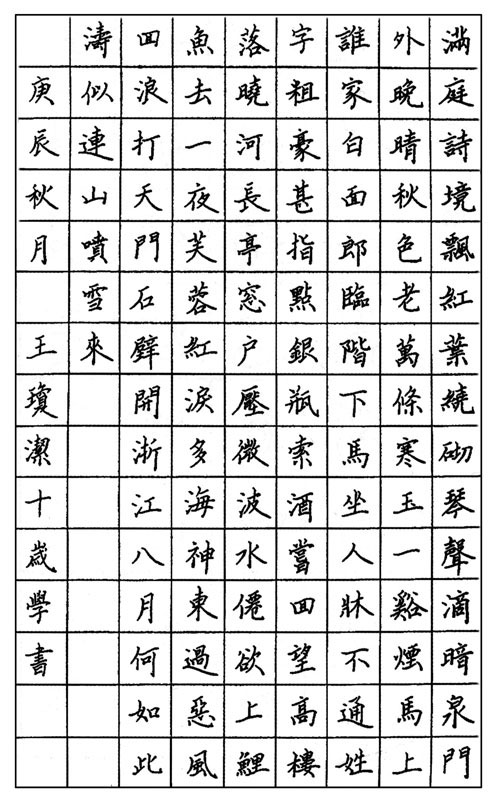 滿庭詩境飄紅葉繞砌琴聲滴暗泉門
外晚晴秋色老萬條寒玉一谿煙馬上
誰家白面郎臨階下馬坐人牀不通姓
字粗豪甚指點銀瓶索酒嘗囬望高樓
落曉河長亭窓户壓微波水僊欲上鯉
魚去一夜芙蓉紅淚多海神東過惡風
囬浪打天門石壁開浙江八月何如此
濤似連山噴雪來
庚辰秋月 王瓊潔十歲學書